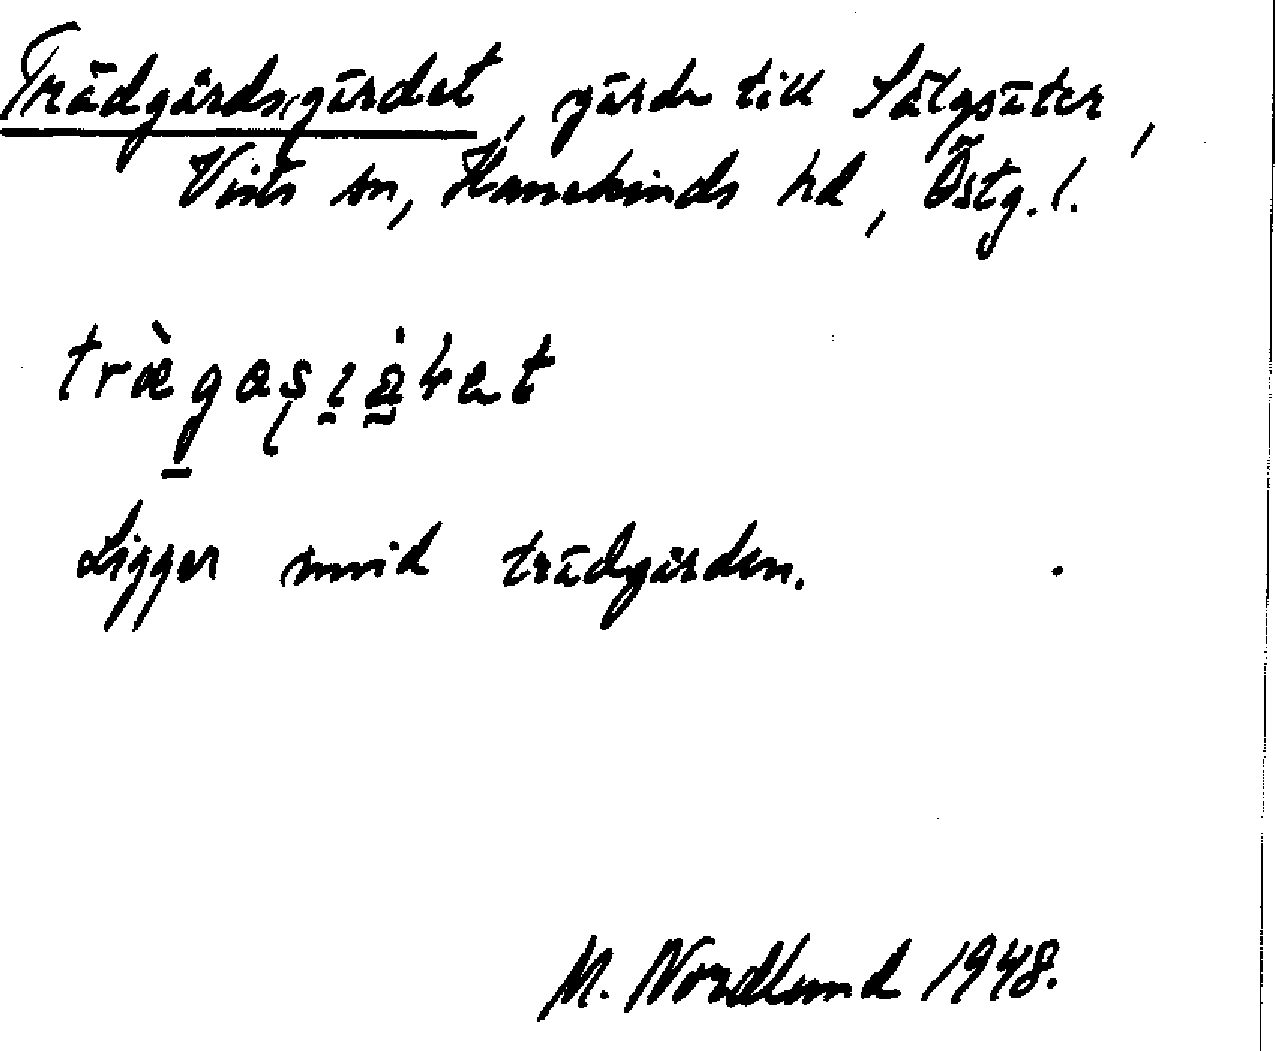 Trädgårdsgärdet, gärde till Sätgsäter,
Vists sn, Hanekinds hd, Östg. l.
Ligger invid trädgården.
M. Nordlund 1948.